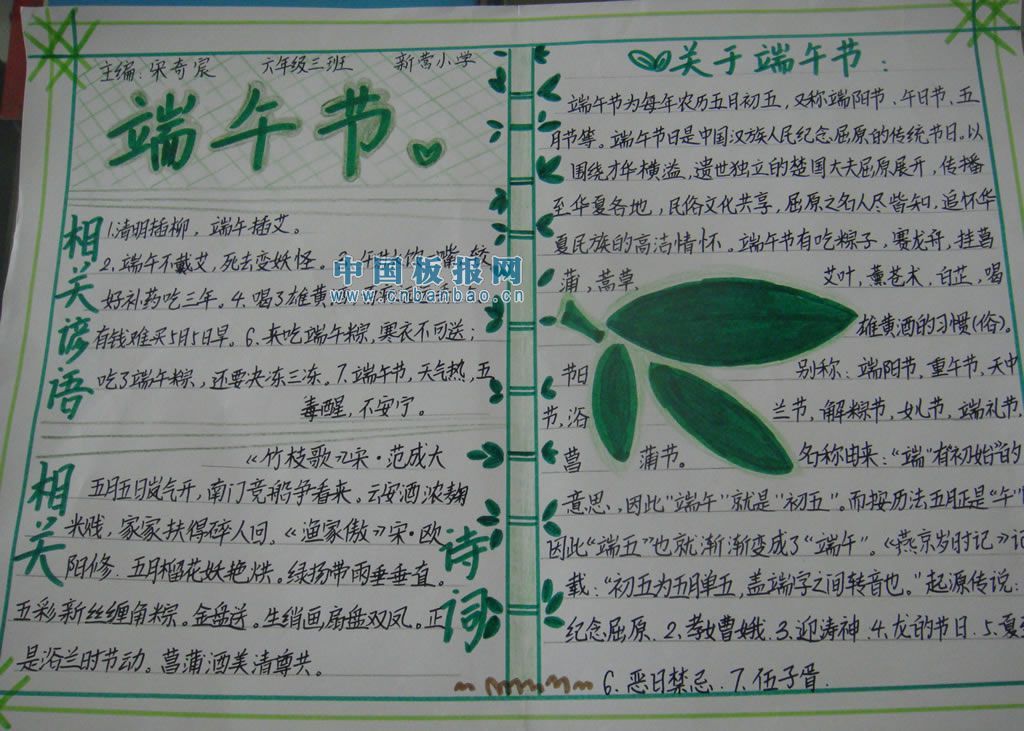 主编:宋奇宸 六年级三班 新营小学
端午节
相关谚语
1.清明插柳，端午插艾。
2.端午不戴艾，死去变妖怪。
好补药吃三年。4.喝了雄黄
有钱难买5月5日早。6.来吃端午粽，寒衣不可送；
吃了端午粽，还要冻三冻。7.端午节，天气热，五
毒醒，不安宁。
相关
诗词
《竹枝歌》宋·范成大
五月五日岚气开，南门竞船争看来。云安酒浓麹
米贱，家家扶得碎人回。《渔家傲》宋·欧
阳修.五月榴花妖艳烘。绿扬带雨垂垂直。
五彩新丝缠角粽。金盘送。生绡画扇盘双凤。正
是浴兰时节动。菖蒲酒美清尊共。
关于端午节：
端午节为每年农历五月初五，又称端阳节、午日节、五
月节等。端午节日是中国汉族人民纪念屈原的传统节日。以
围绕才华横溢，遗世独立的楚国大夫屈原展开，传播
至华夏各地，民俗文化共享，屈原之名人尽皆知，追怀华
夏民族的高洁情怀。端午节有吃粽子，赛龙舟，挂菖
蒲，蒿草， 艾叶，薰苍术，白芷，喝
雄黄酒的习惯(俗)。
节日 别称：端阳节，重午节，天中
节，浴 兰节，解粽节，女儿节，端礼节，
菖 蒲节。 名称由来：“端”有初始的
意思，因此“端午”就是“初五”。而按历法五月正是“午”
因此“端五”也就渐渐变成了“端午”。《燕京岁时记》记
载：“初五为五月单五，盖端字之间转音也。”起源传说：
纪念屈原.2.孝女曹娥.3.迎涛神.4.龙的节日.5.夏至
6.恶日禁忌.7.伍子胥.
中国板报网
www.cnbanbao.cn